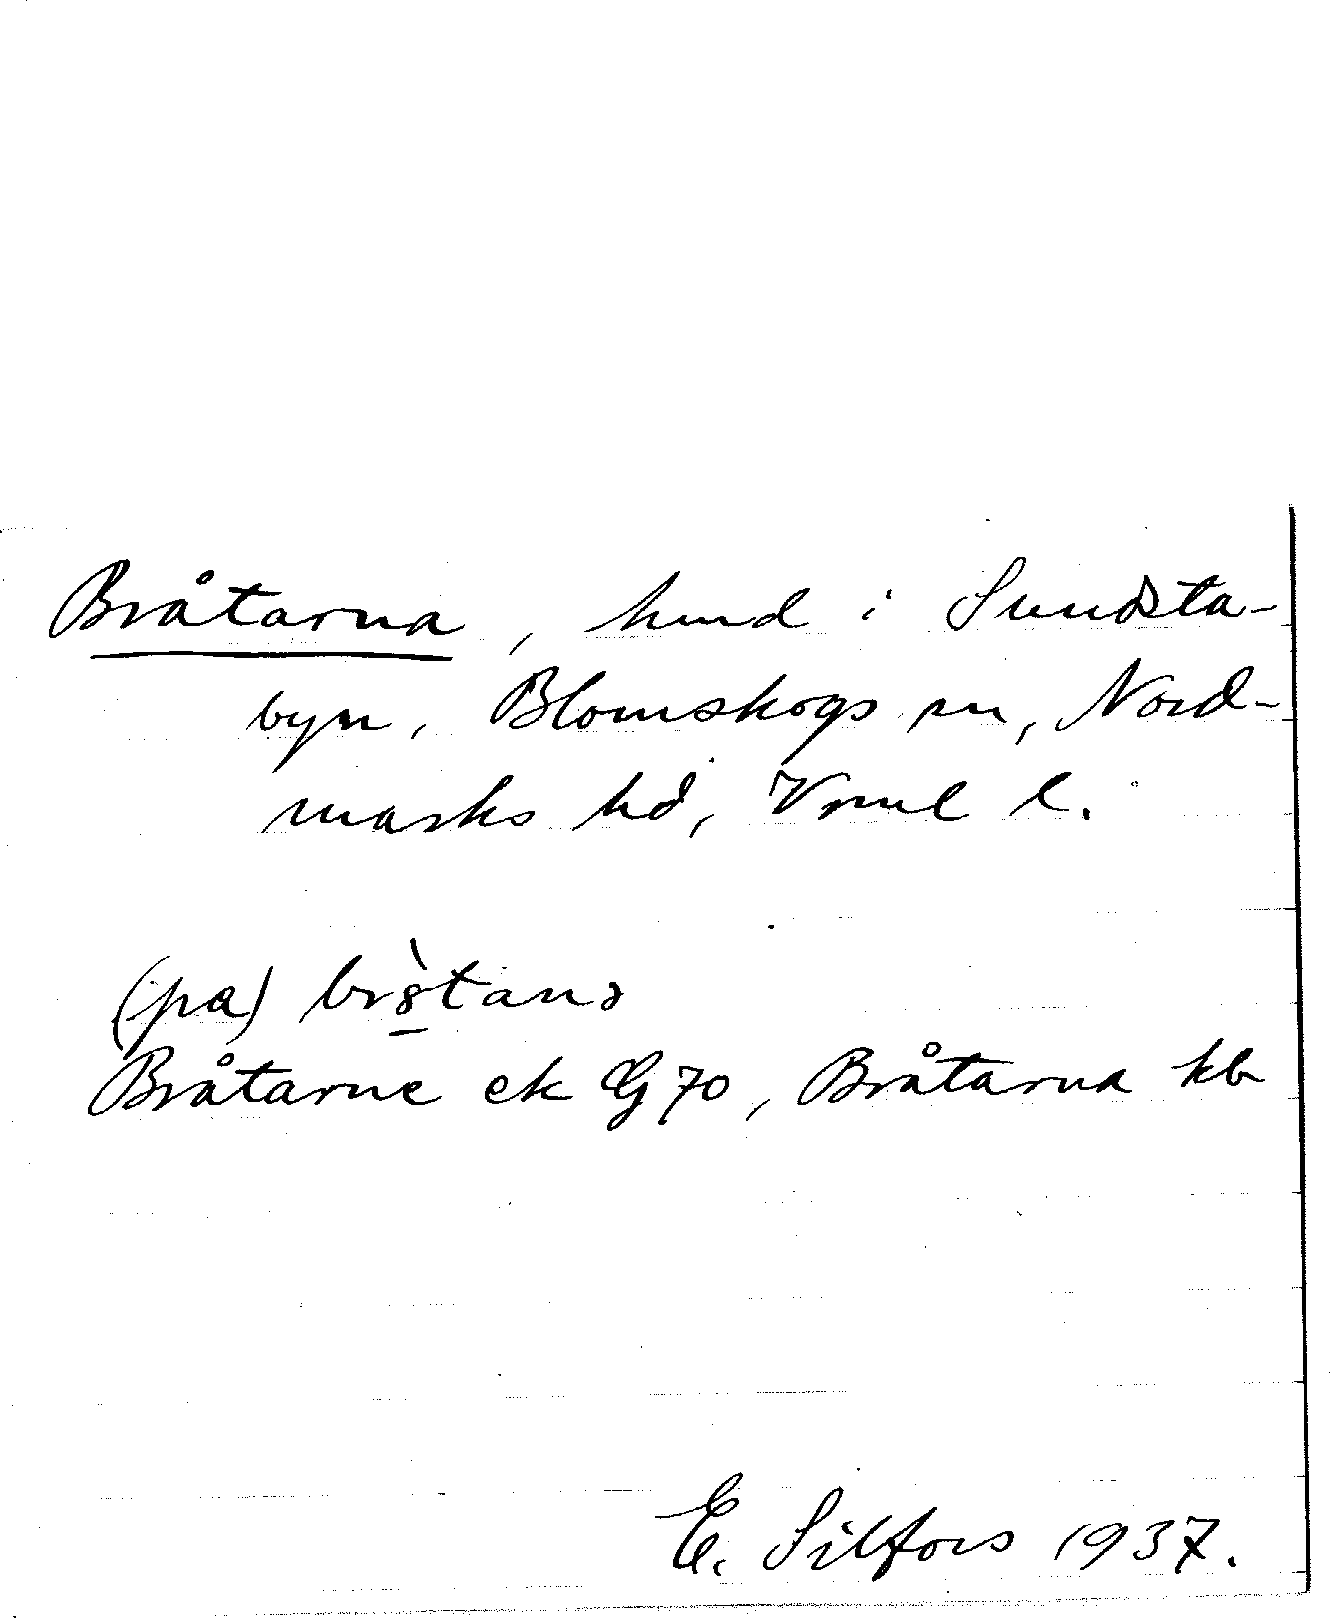 Bråtarna, hmd i Sundsta-
byn, Blomskogs sn, Nord-
marks hd, Vrml l.
(pa)
Bråtarne ek G70, Bråtarna kb
E. Silfors 1937.